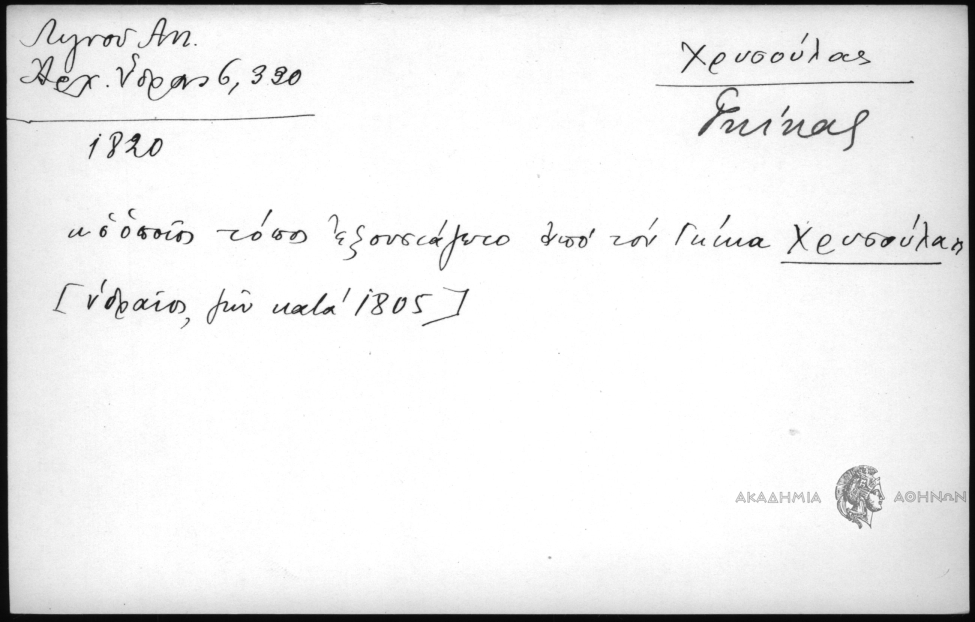 Λιγνοῦ Ἀντ.
Ἀρχ. Ὕδρας 6, 320
1820
Χρυσούλας
Γκίκας
κ ὁ ὁποῖος τόπος ἐξουσιάζετο ἀπό τόν Γκίκα Χρυσούλα
[ὑδραῖος, ζῶν κατά 1805]
ΑΚΑΔΗΜΙΑ ΑΘΗΝΩΝ